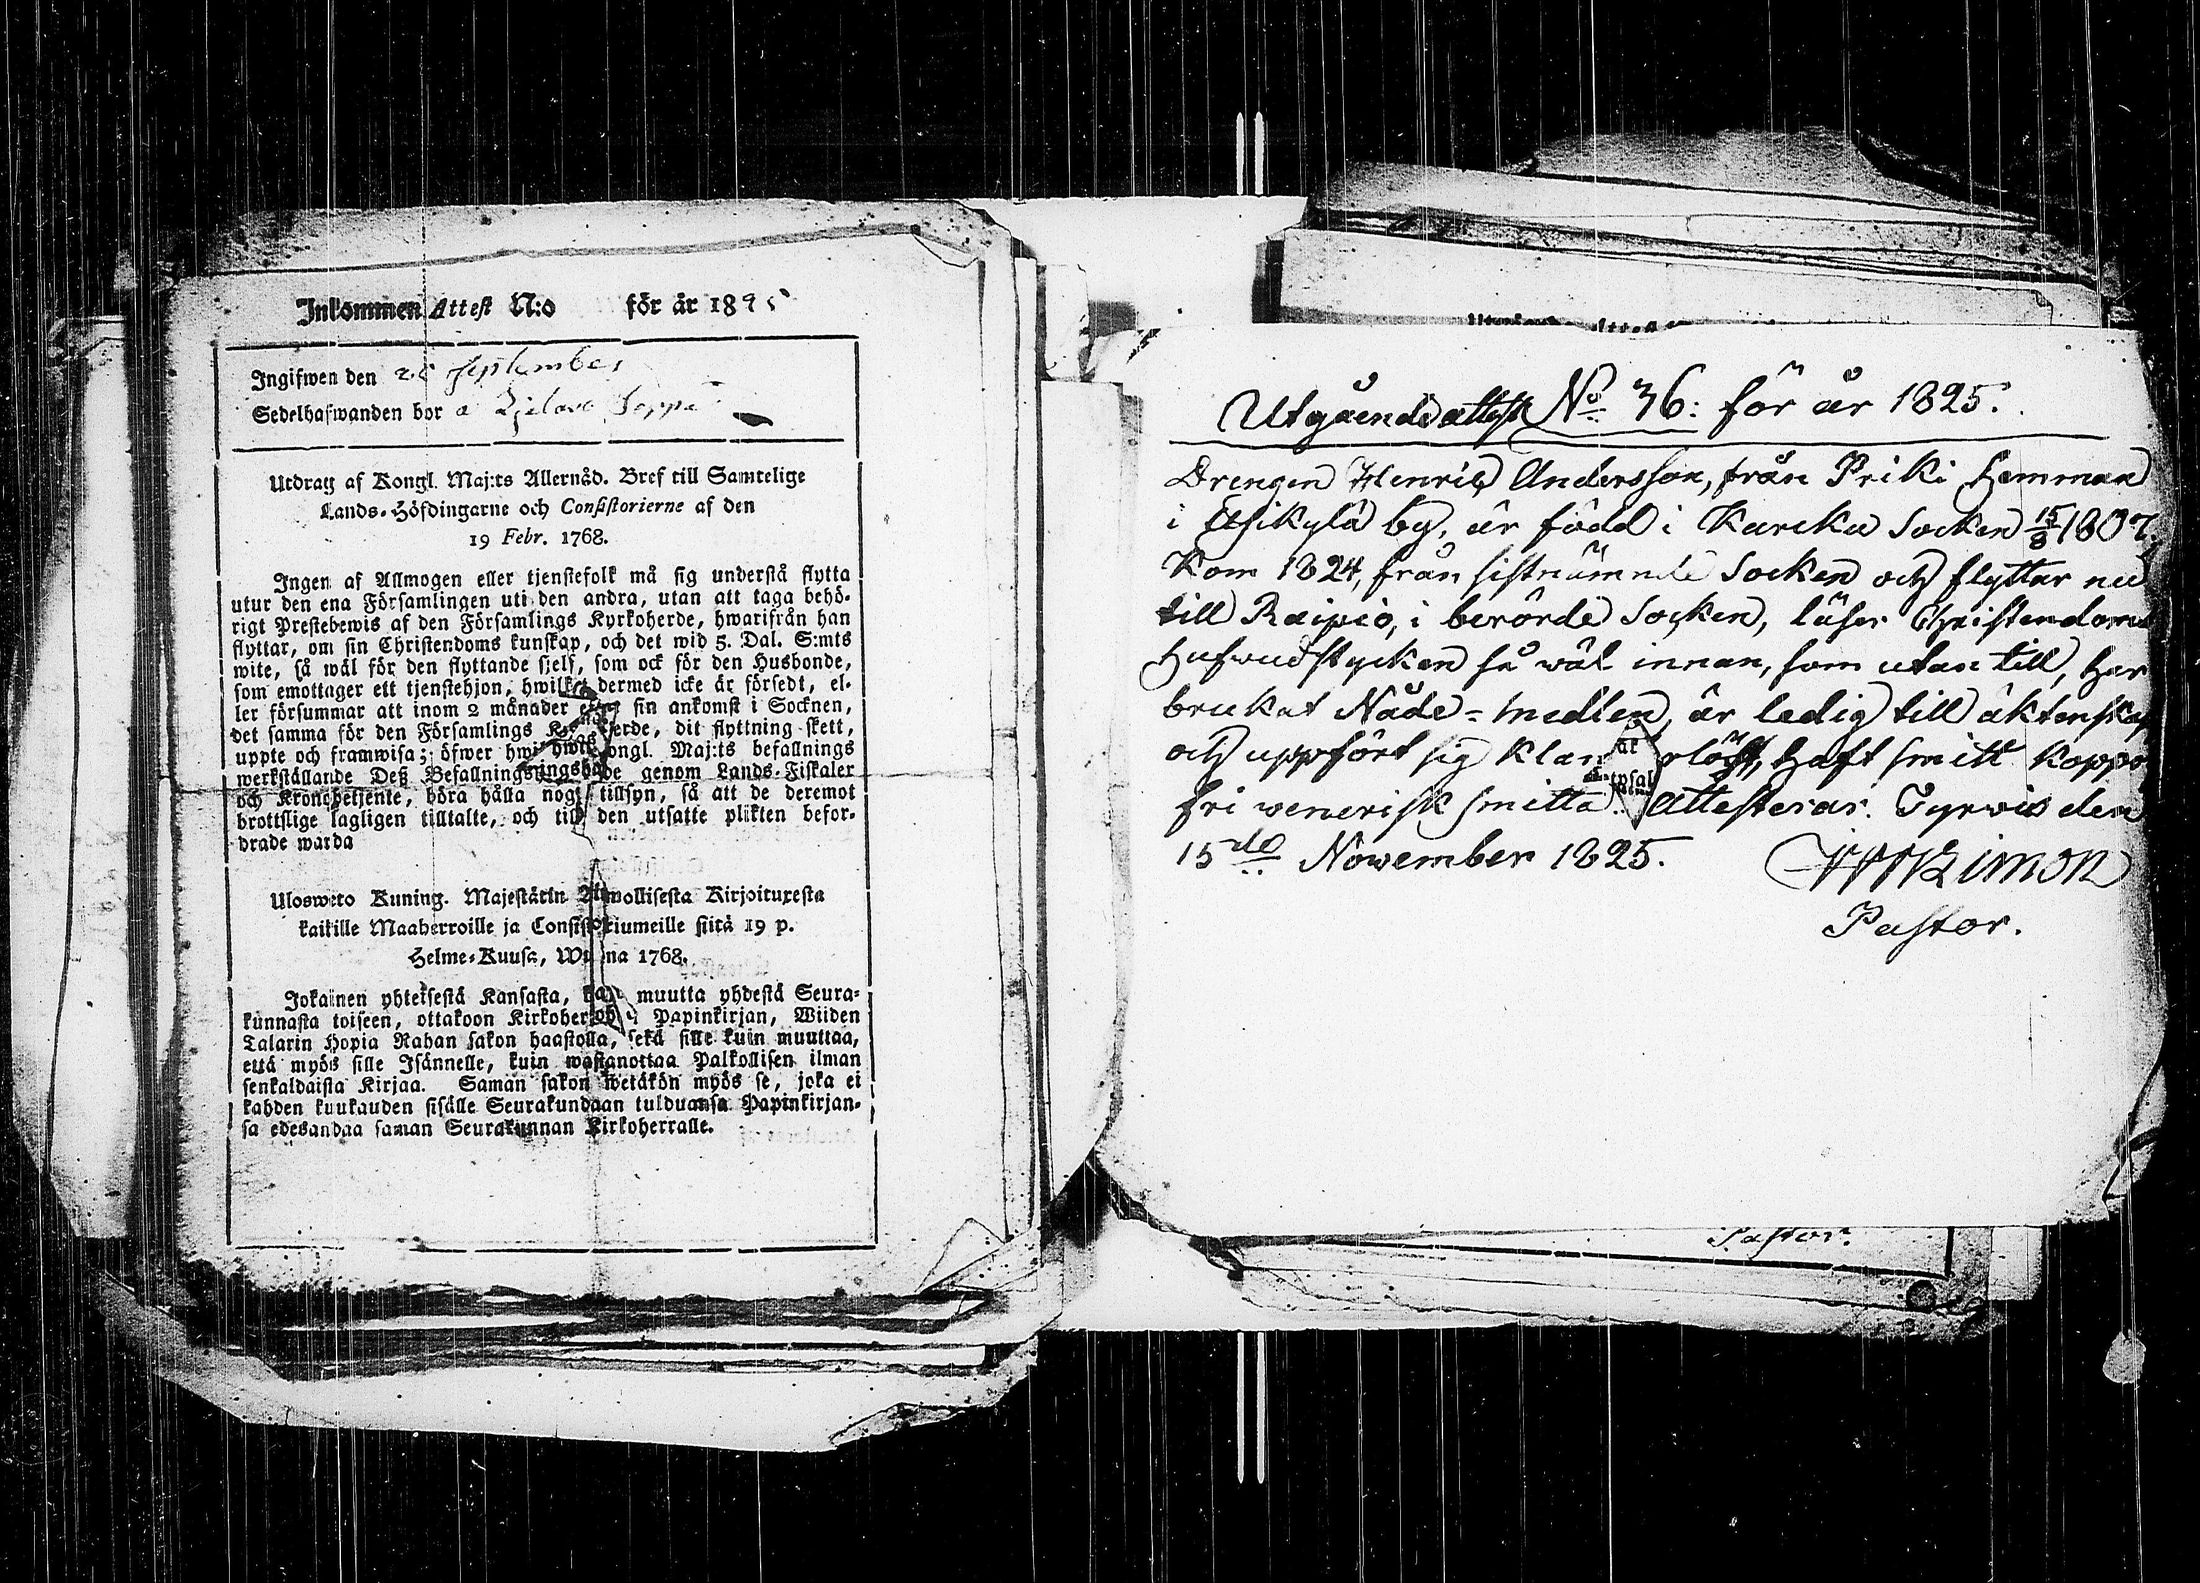 Inkommen Attest N:o för år 1825
Ingifwen den September
Sedelhafwanden bor
Utdrag af Kongl. Maj:ts Allernåd. Bref till Samtelige
Lands-Höfdingarne och Consistorierne af den
19 Febr. 1768.
Ingen af Allmogen eller tjenstefolk må sig understå flytta
utur den ena Församlingen uti den andra, utan att taga behö-
rigt Prestebewis af den Församlings Kyrkoherde, hwarifrån han
flyttar, om sin Christendoms kunskap, och det wid 5. Dal. S:mts
wite, så wäl för den flyttande sjelf, som ock för den Husbonde,
som emottager ett tjenstehjon, hwilket dermed icke är försedt, el-
ler försummar att inom 2 månader sin ankomst i Socknen,
det samma för den Församlings dit flyttning skett,
uppte och framwisa; öfwer Kongl. Maj:ts befallnings
werkställande Deß genom Lands-Fiskaler
och Kronobetjente, böra hålla noga tillsyn, så att de deremot
brottslige lagligen tilltalte, och till den utsatte plikten befor-
drade warda
Ulosweto Kuning. Majestätin Armollisesta Kirjoituxesta
kaikille Maaherroille ja Consistoriumeille siitä 19 p.
Helme-Kuusa, Wuonna 1768.
Jokainen yhteisestä Kansasta, muutta yhdestä Seura-
kunnasta toiseen, ottakoon Papinkirjan, Wiiden
Talarin Hopia Rahan sakon haastolla, sekä sille kuin muuttaa,
että myös sille Isännelle, kuin wastanottaa Palkollisen ilman
senkaldaista Kirjaa. Saman sakon wetäkön myös se, joka ei
kahden kuukauden sisälle Seurakundaan tulduansa Papinkirjan-
sa edesandaa saman Seurakunnan Kirkoherralle.
Utgående attest No 36: för år 1825.
Drengen Henric Andersson, från Priki Hemman
i by, är född i Kareka Socken 15/8 1807.
Kom 1824, från sistnämnde Socken och flyttar nu
till Raipio, i berörde Socken, läser Christendoms
Hufwudstycken så wäl innan, som utan till, har
brukat Nåde-medlen, är ledig till äktenskap
och uppfört sig haft smitt koppor
fri wenerisk smitta attesterar. Tyrwis den
15de November 1825.
Pastor.
Pastor.